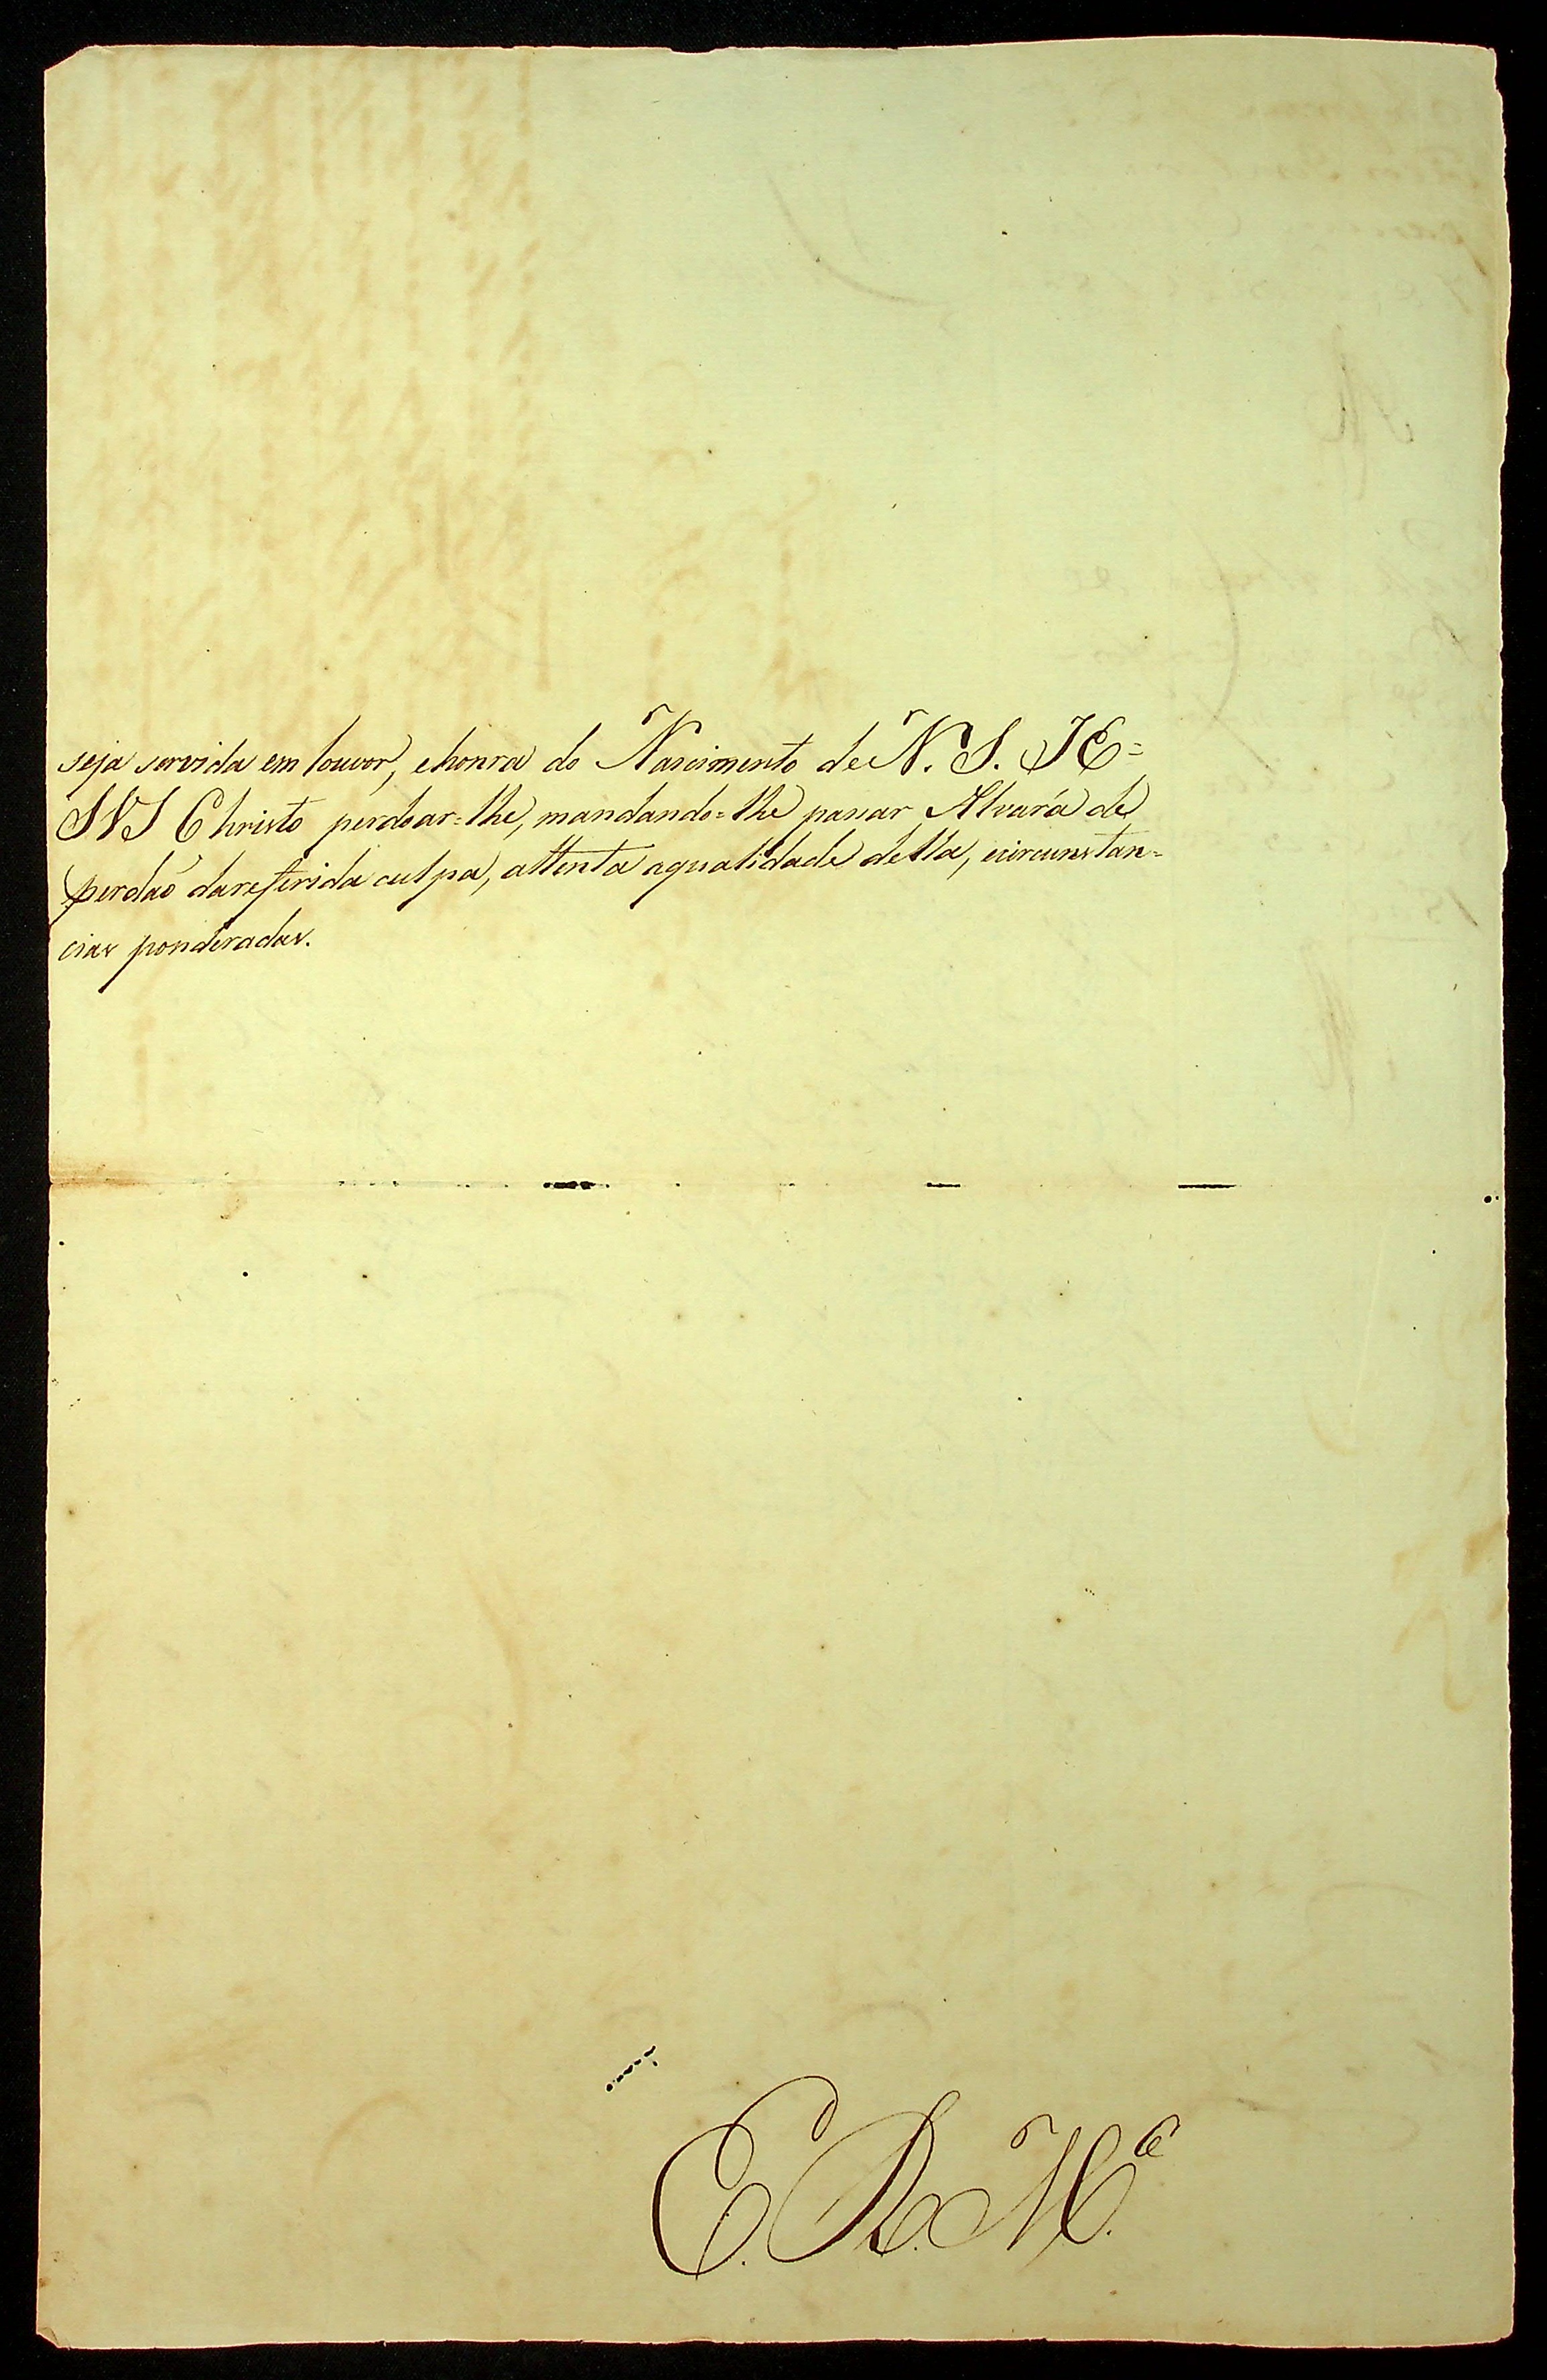 seja servida em louvor, e honra do Nascimento de N. S. JE=
SVS Christo perdoar=lhe, mandando=lhe passar Alvará de
perdaõ da referida culpa, attenta a qualidade della, e circunstan=
cias ponderadas.
E. R. M.ce